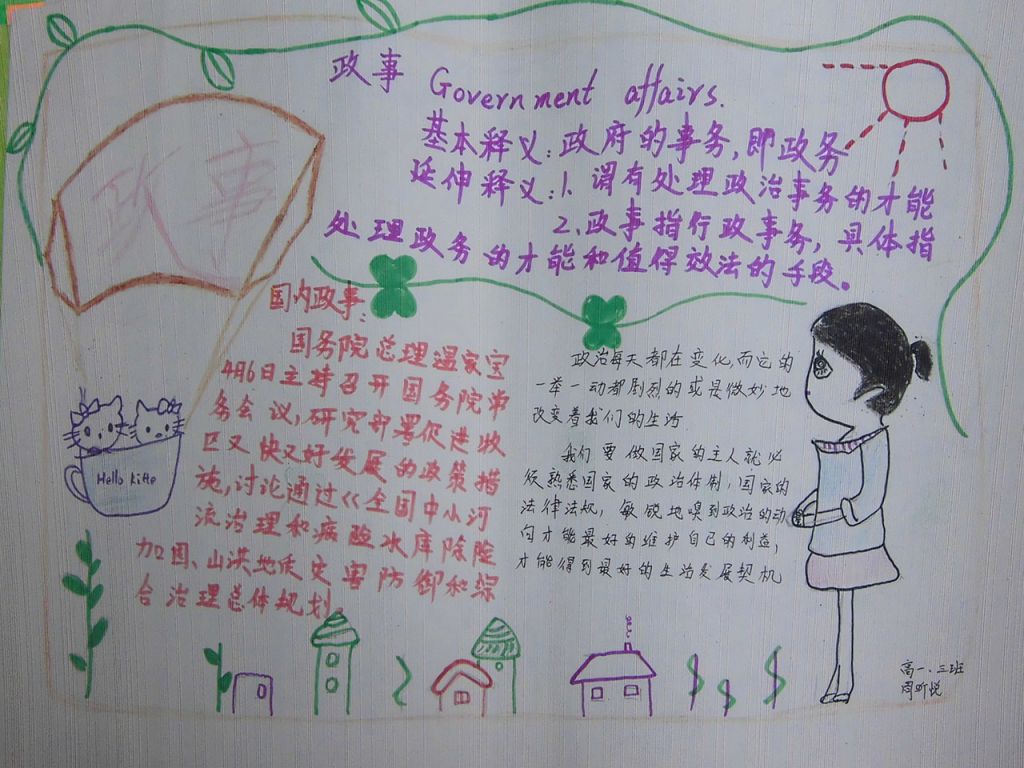 政事
政事 Government affairs.
基本释义:政府的事务,即政务
延伸释义:1.谓有处理政治事务的才能
2.政事指行政事务,具体指
处理政务的才能和值得效法的手段。
国内政事:
国务院总理温家宝
4月6日主持召开国务院常
务会议,研究部署促进牧
区又快又好发展的政策措
施,讨论通过《全国中小河
流治理和病险水库除险
加固、山洪地质灾害防御和综
合治理总体规划。
Hello kitte
政治每天都在变化,而它的
一举一动都剧烈的或是微妙地
改变着我们的生活
我们要做国家的主人就必
须熟悉国家的政治体制,国家的
法律法规,敏锐地嗅到政治的动
向才能最好的维护自己的利益,
才能得到最好的生活发展契机
高一.三班
周昕悦